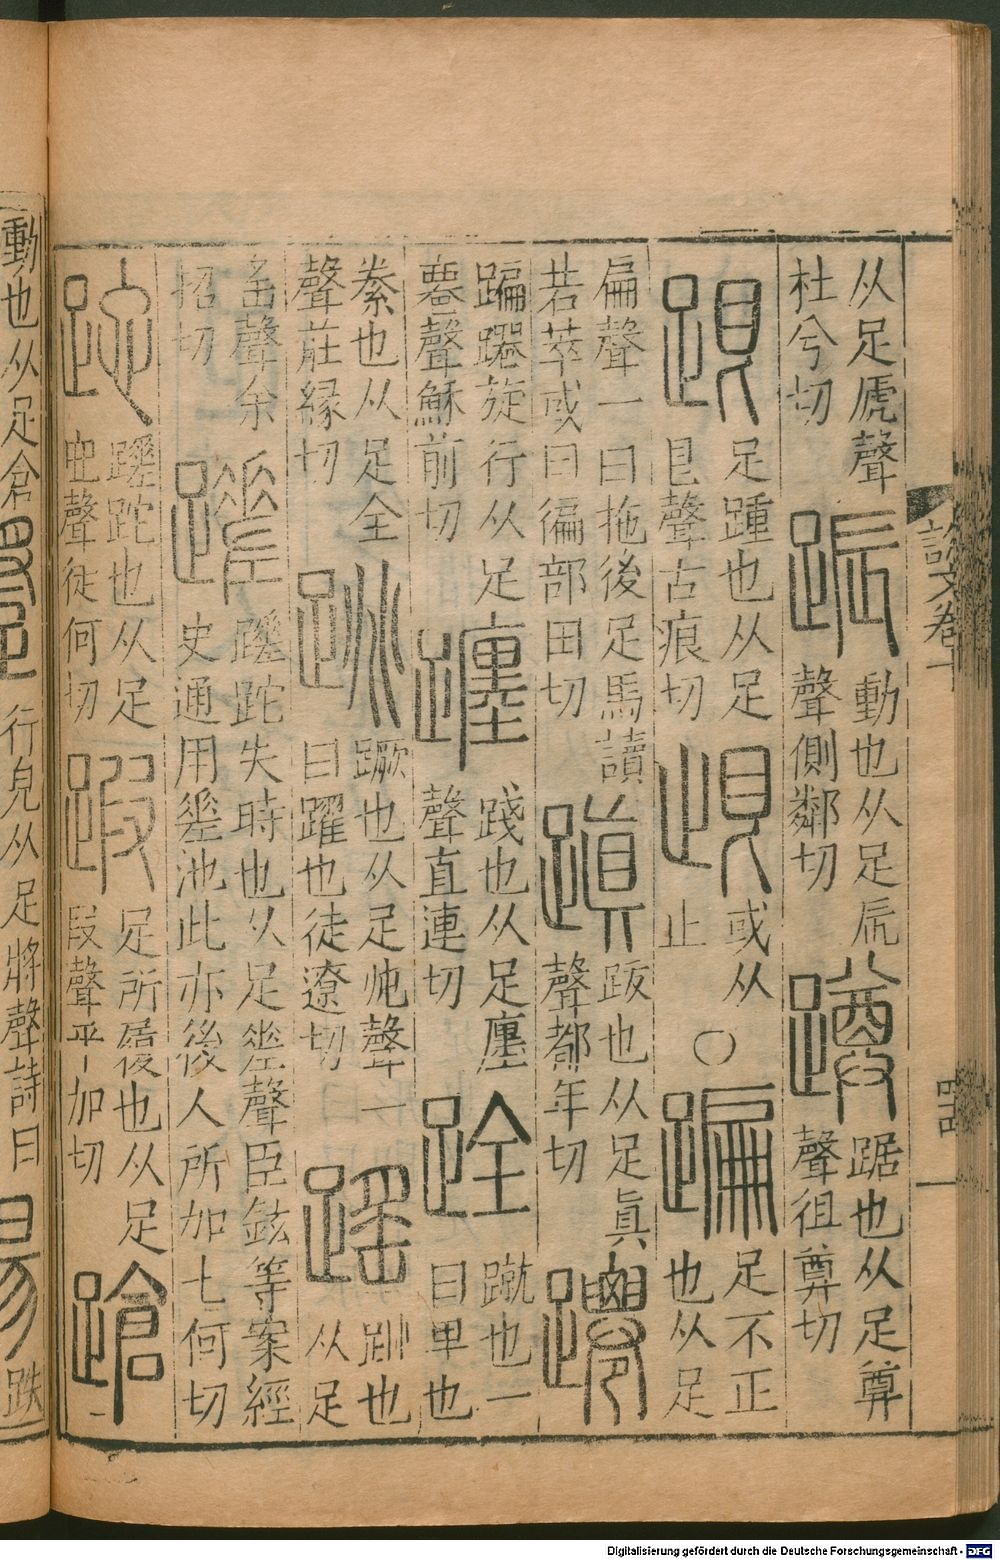 从足虒聲
杜兮切
動也从足辰
聲側鄰切
踞也从足尊
聲徂尊切
足踵也从足
㫐聲古痕切
或从
止
○
足不正
也从足
扁聲一曰拖後足馬讀
若苹或曰徧部田切
跋也从足眞
聲都年切
蹁躚旋行从足
䙴聲穌前切
踐也从足廛
聲直連切
蹴也一
曰卑也
絭也从足全
聲莊緣切
蹶也从足兆聲一
曰躍也徒遼切
跳也
从足
䍃聲余
招切
蹉跎失時也从足㘸聲臣鉉等案經
史通用差池此亦後人所加七何切
蹉跎也从足
它聲徒何切
足所履也从足
叚聲乎加切
動也从足倉
行皃从足將聲詩曰
跌
說文卷
四
Digitalisierung gefördert durch die Deutsche Forschungsgemeinschaft - DFG